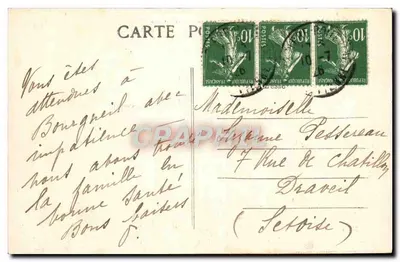 CARTE PO
10
10
10
POSTES
Vous êtes
attendues à
Bourgueil avec
impatience
nous avons trouvé
la famille en
bonne santé
Bons baisers
Mademoiselle
Suzanne Pessereau
7 Rue de Chatillon
Draveil
(Setoise)